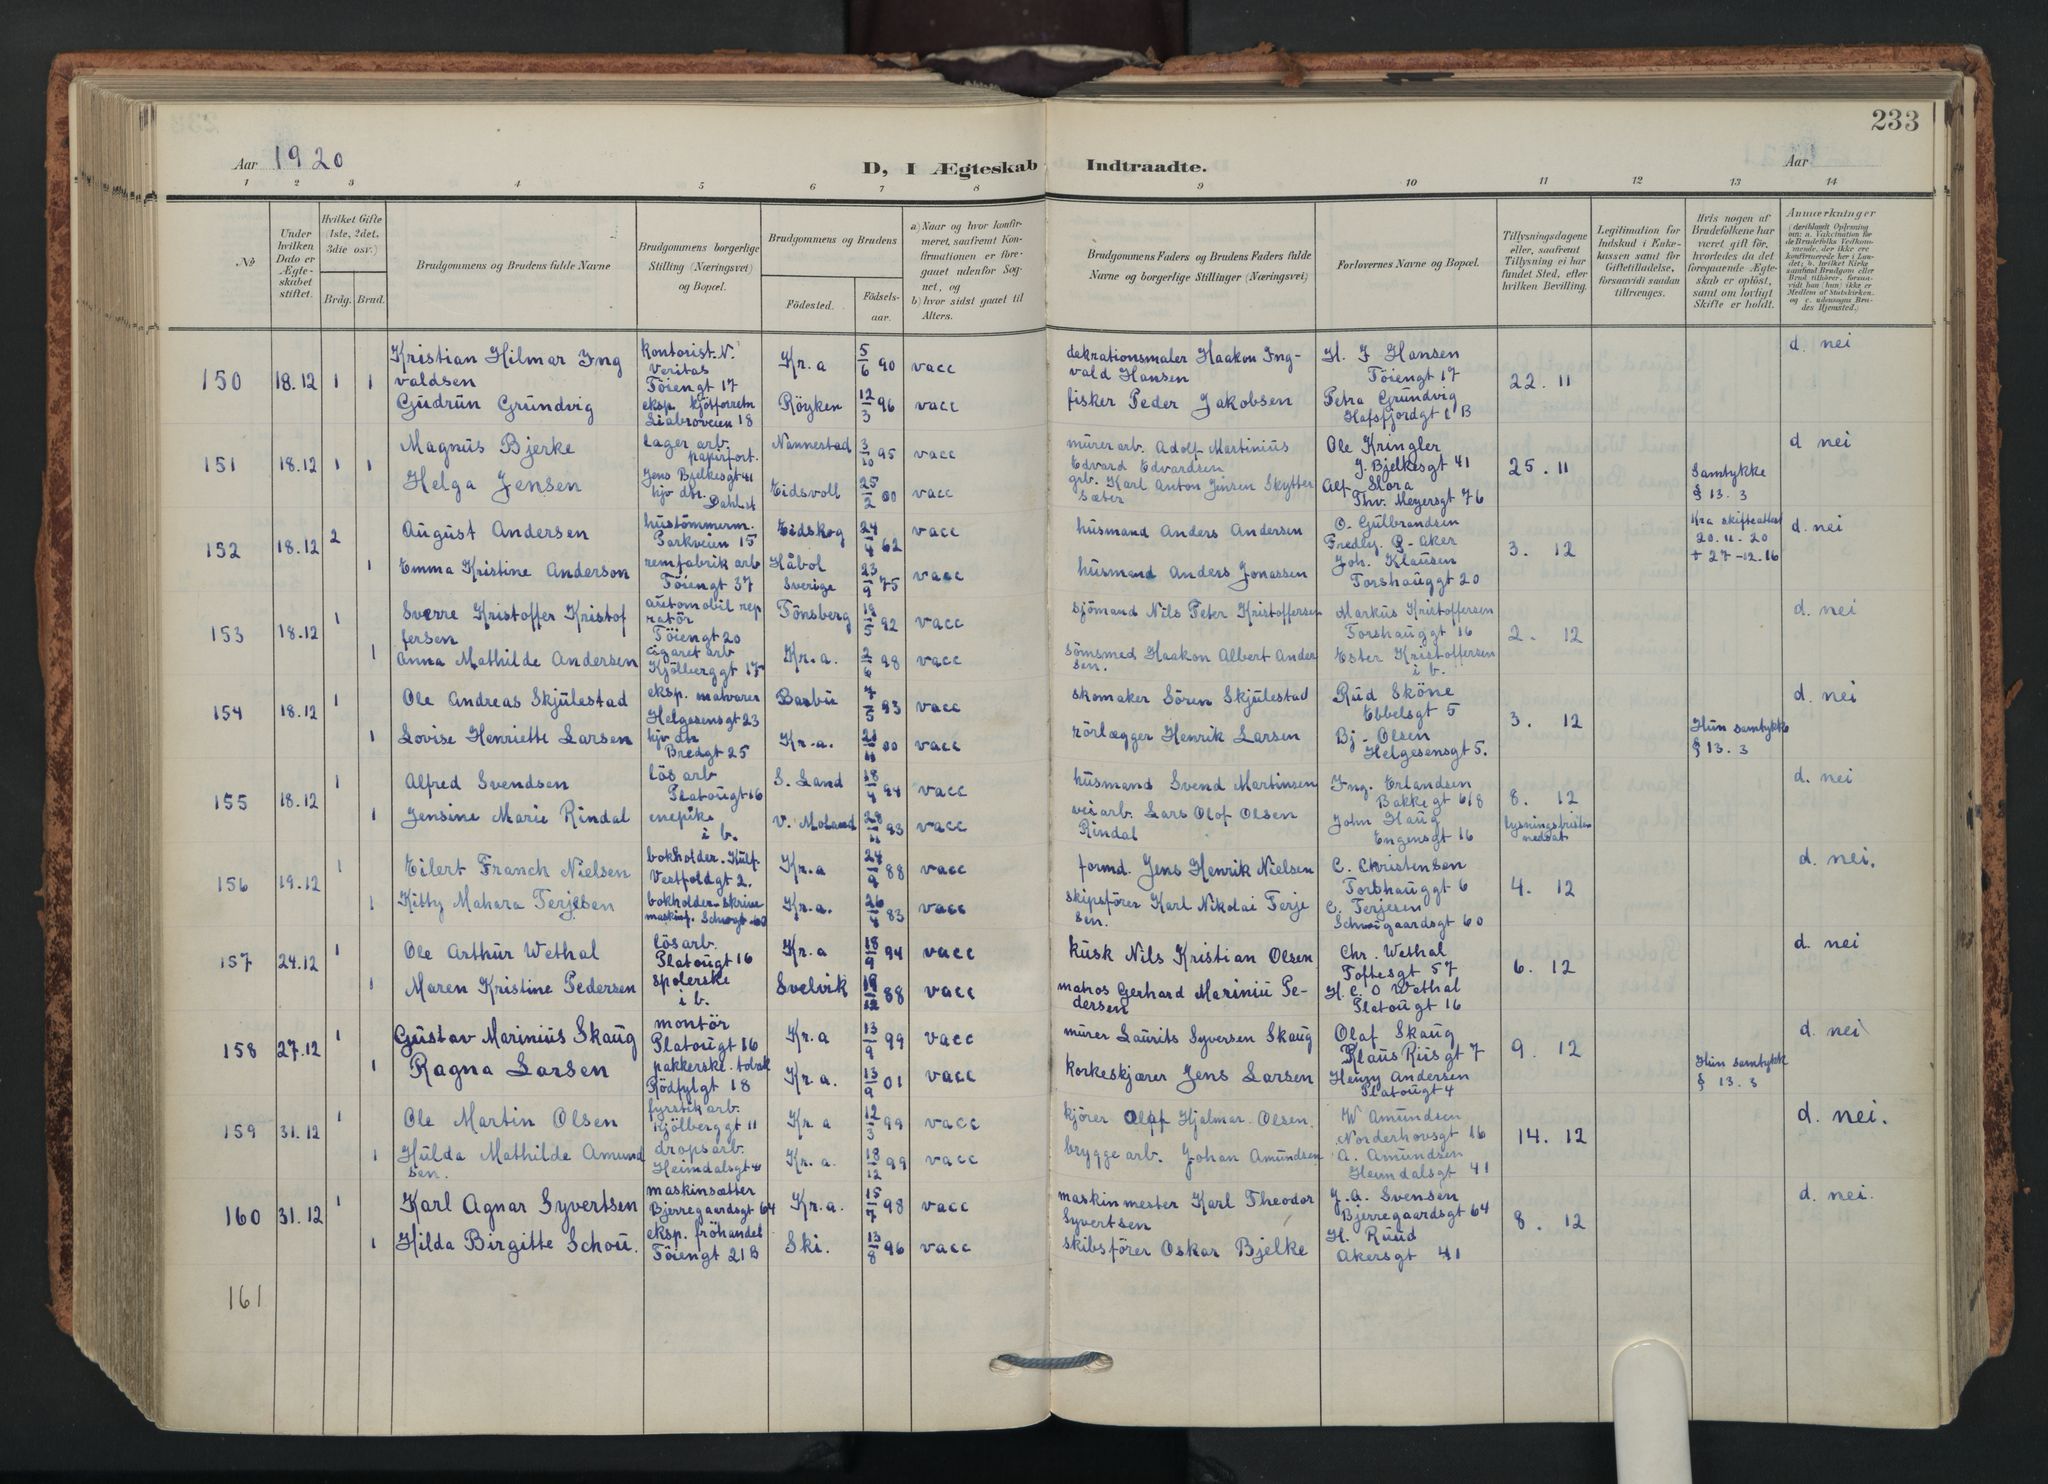 233
Aar 1920
D, I Ægteskab Indtraadte.
Aar
1 2 3 4 5 6 7 8 9 10 11 12 13 14
No
Under hvilken Dato er Ægteskabet stiftet.
Hvilket Gifte (1ste, 2det, 3die osv.)
Brdg. Brud.
Brudgommens og Brudens fulde Navne
Brudgommens borgerlige Stilling (Næringsvei) og Bopæl.
Brudgommens og Brudens
Födested. Födselsaar.
a) Naar og hvor konfirmeret, saafremt Konfirmationen er foregaaet udenfor Sognet, og
b) hvor sidst gaaet til Alters.
Brudgommens Faders og Brudens Faders fulde Navne og borgerlige Stillinger (Næringsvei)
Forlovernes Navne og Bopæl.
Tillysningsdagene eller, saafremt Tillysning ei har fundet Sted, efter hvilken Bevilling.
Legitimation for Indskud i Enkekassen samt for Giftetilladelse, forsaavidt saadan tiltrænges.
Hvis nogen af Brudefolkene har været gift för, hvorledes da det foregaaende Ægteskab er oplöst, samt om lovligt Skifte er holdt.
Anmærkninger
(deriblandt Oplysning om: a. Vakcination for de Brudefolks Vedkommende, der ikke ere konfirmerede her i Landet; b. hvilket Kirkesamfund Brudgom eller Brud tilhörer, forsaavidt han (hun) ikke er Medlem af Statskirken, og c. udensogns Brudes Hjemsted.)
150 18.12 1 1 Kristian Hilmar Ingvaldsen kontorist N. Veritas Töiengt 17 Kr.a 5/6 90 vacc dekrationsmaler Haakon Ingvald Hansen H. J Hansen Töiengt 17 22. 11 d. nei
Gudrun Grundvig eksp. kjötforretn Liabroveien 18 Röyken 12/3 96 vacc fisker Peder Jakobsen Petra Grundvig Hafsfjordgt 1 B
151 18.12 1 1 Magnus Bjerke lager arb. papirfort. Jens Bjelkesgt 41 Nannestad 3/10 95 vacc murer arb. Adolf Martinius Edvard Edvardsen Ole Kringler J. Bjelkesgt 41 25. 11 d nei
Helga Jensen hjv dtr. Dahlst Eidsvoll 25/2 00 vacc grb. Karl Anton Jensen Skyttersæter Alf Slora Thv. Meyersgt 76 Samtykke § 13. 3
152 18.12 2 August Andersen hustömmerm. Parkveien 15 Eidskog 24/4 62 vacc husmand Anders Andersen O. Gulbrandsen Fredly. Ø. Aker 3. 12 Kra skifteattest 20. 11. 20 + 27-12.16 d. nei
1 Emma Kristine Anderson remfabrik arb Töiengt 37 Håbol Sverige 23/9 75 vacc husmand Anders Jonassen Joh. Klausen Torshauggt 20
153 18.12 1 Sverre Kristoffer Kristoffersen automobil repratör Töiengt 20 Tönsberg 18/5 92 vacc sjömand Nils Peter Kristoffersen Markus Kristoffersen Torshauggt 16 2. 12 d. nei
1 Anna Mathilde Andersen cigaret arb Kjölberggt 17 Kr.a. 2/6 98 vacc sömsmed Haakon Albert Andersen. Ester Kristoffersen i b.
154 18.12 1 Ole Andreas Skjulestad eksp. matvarer Helgesensgt 23 Barbu 7/5 93 vacc skomaker Sören Skjulestad Rud Sköne Ebbelsgt 5 3. 12 d. nei
1 Lovise Henriette Larsen hjv dtr Bredgt 25 Kr.a. 00 vacc rörlægger Henrik Larsen Bj. Olsen Helgesensgt 5. Hun samtykke § 13. 3
155 18.12 1 Alfred Svendsen lös arb Platougt 16 S. Land 18/4 94 vacc husmand Svend Martinsen Ing. Erlandsen Bakkegt 6/8 8. 12 d. nei
1 Jensine Marie Rindal enepike i b. V. Moland 28/11 93 vacc veiarb. Lars Olof Olsen Rindal John Haug Engensgt 16 lysningsfristen nedsat
156 19.12 1 Eilert Franch Nielsen bokholder. Kulf. Vestfoldgt 2. Kr.a 24/9 88 vacc formd. Jens Henrik Nielsen C. Christensen Torshauggt 6 4. 12 d. nei.
1 Kitty Mahara Terjesen bokholder. skrivemaskinf. Schwgt. 60 Kr.a. 26/4 83 vacc skipsförer Karl Nikolai Terjesen. C. Terjesen Schwgaardsgt 60
157 24.12 1 Ole Arthur Wethal lösarb. Platougt 16 Kr.a 18/9 94 vacc kusk Nils Kristian Olsen Chr. Wethal Toftesgt 57 6. 12 d. nei
1 Maren Kristine Pedersen spolerske i b. Svelvik 19/12 88 vacc matros Gerhard Mariniu Pedersen H. C. O Wethal Platougt 16
158 27.12 1 Gustav Marinius Skaug montör Platougt 16 Kr.a 13/9 99 vacc murer Laurits Syversen Skaug Olaf Skaug Klaus Riisgt 7 9. 12 d. nei
1 Ragna Larsen pakkerske. tobak Rödfylgt 18 Kr.a. 13/9 01 vacc korkeskjærer Jens Larsen Henry Andersen Platougt 4 Hun samtykk § 13. 3
159 31.12 1 Ole Martin Olsen fyrstik arb. Kjölberggt 11 Kr.a 12/3 99 vacc kjörer Olaf Hjalmar Olsen. W Amundsen Norderhovsgt 16 14. 12 d. nei.
1 Hulda Mathilde Amundsen. dropsarb. Heimdalsgt Kr.a. 18/12 99 vacc brygge arb. Johan Amundsen A. Amundsen Heimdalsgt 41
160 31.12 1 Karl Agnar Syvertsen maskinsætter Bjerregaardsgt 64 Kr.a. 15/7 98 vacc maskinmester Karl Theodor Syvertsen J. A. Svensen Bjerregaardsgt 64 8. 12 d. nei.
1 Hilda Birgitte Schou. eksp. fröhandel Töiengt 21 B Ski. 13/8 96 vacc skibsförer Oskar Bjelke H. Ruud Akersgt 41
161